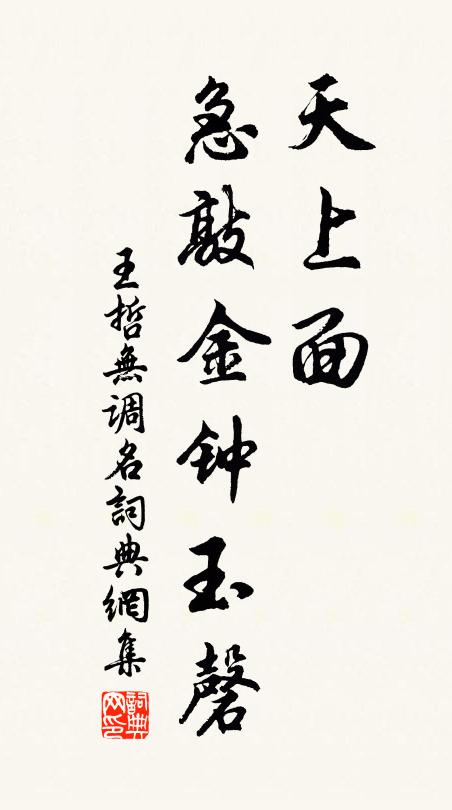 天上面
急敲金钟玉磬
王哲無调名詞典網集
詞典
网印